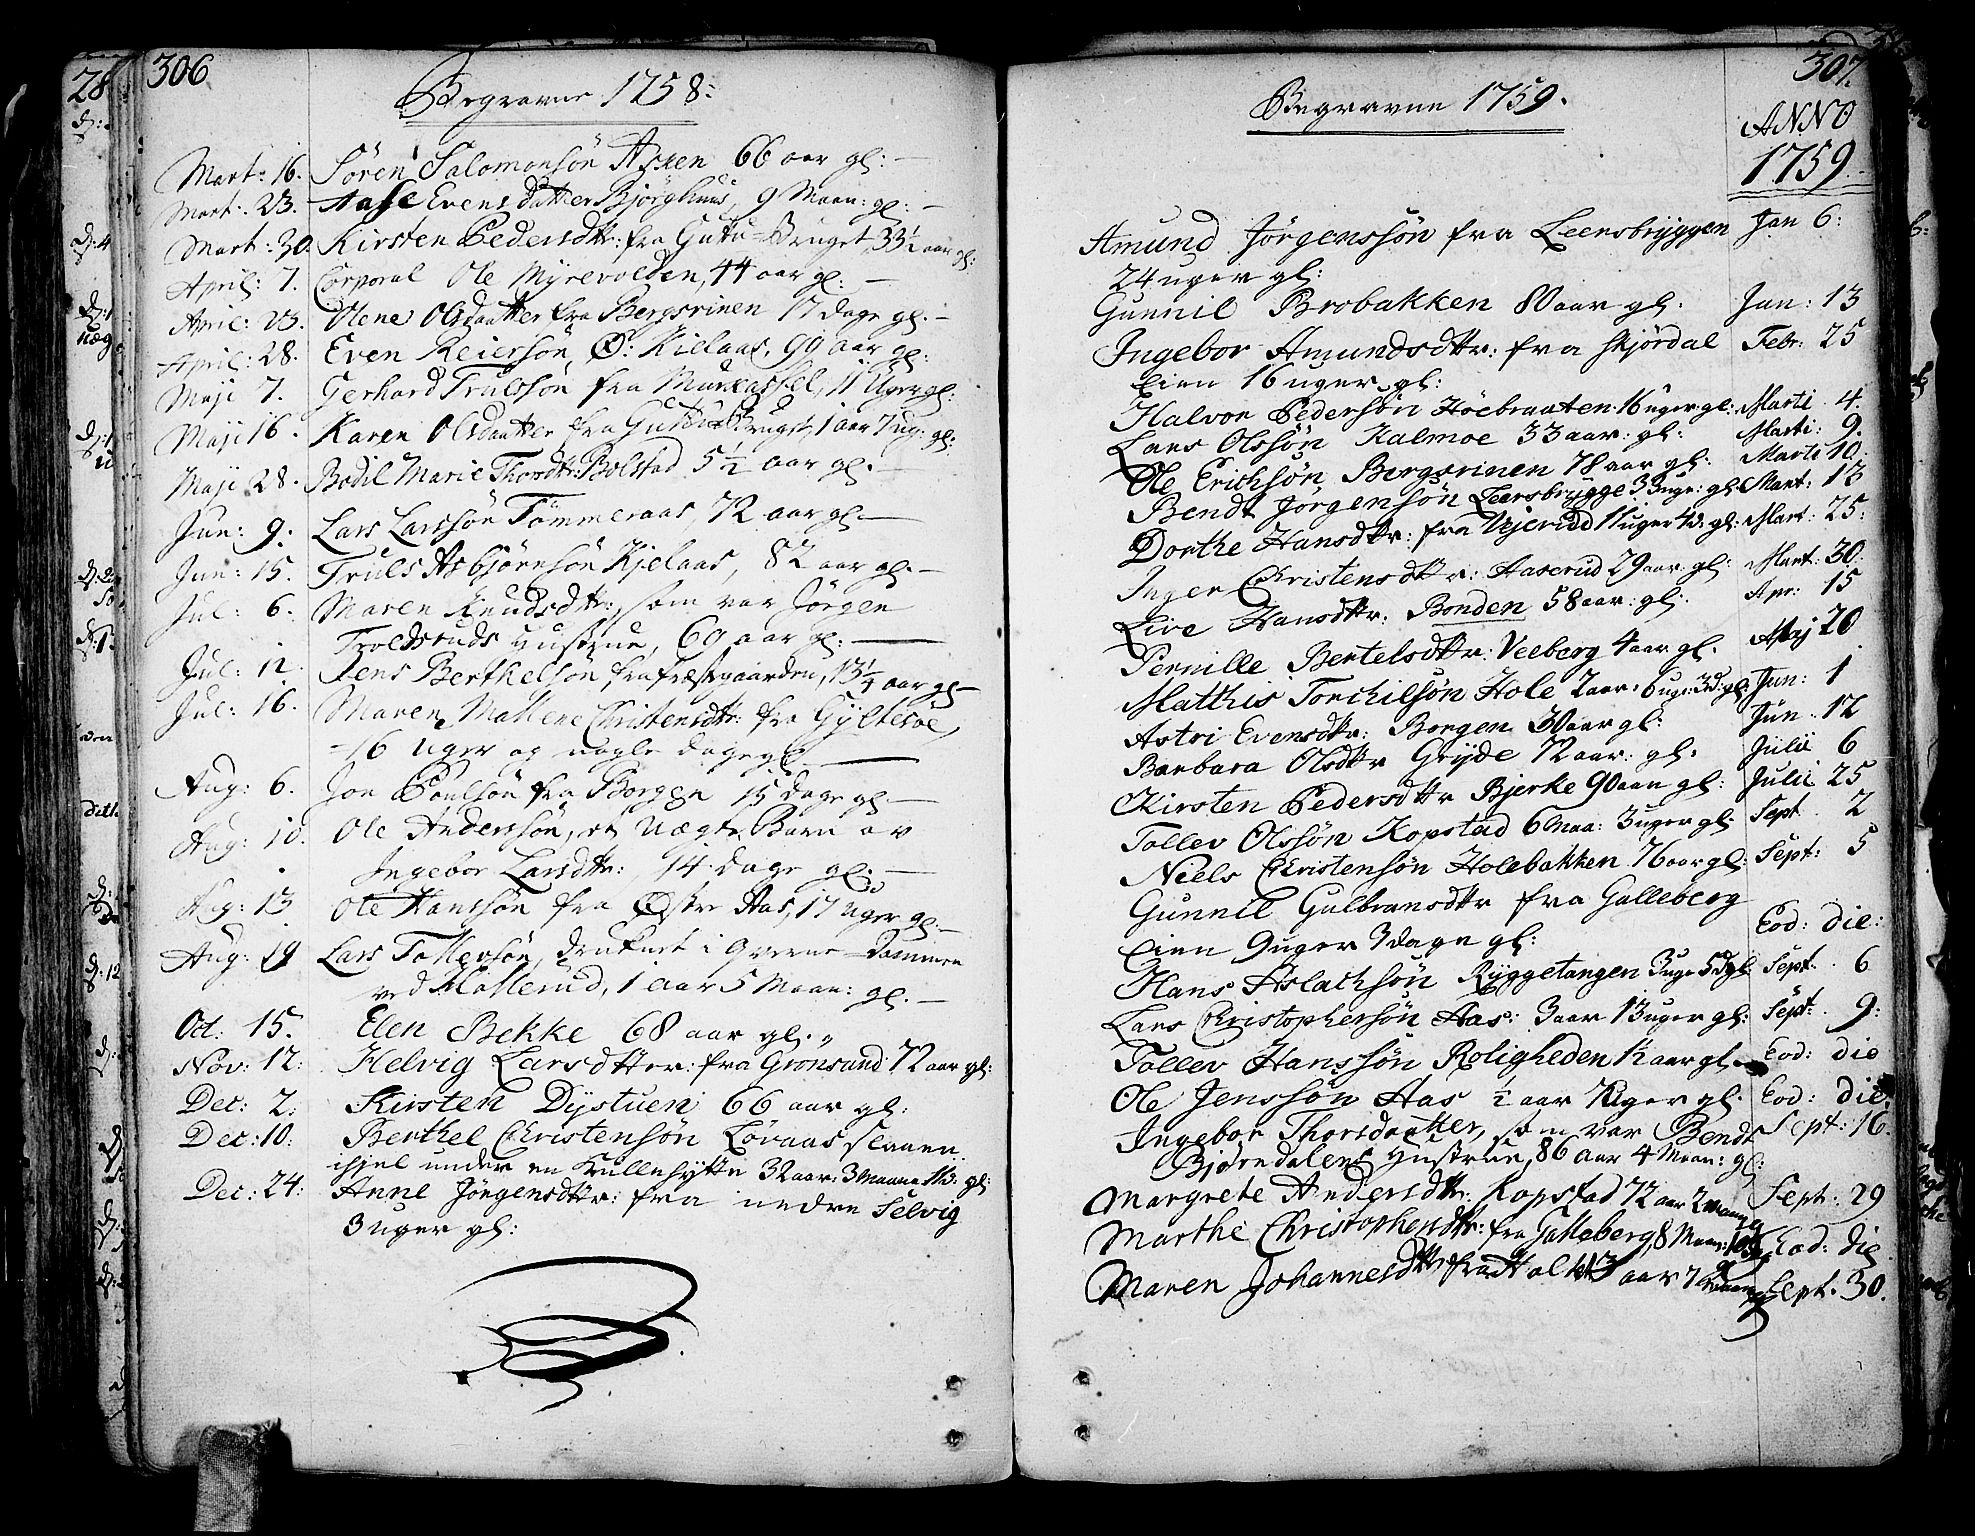 306
Begravne 1758:
Mart: 16. Sören Salomonsön Asken 66 aar gl:
Mart: 23. Aase Evensdatter Bjørghuus, 9 Maan: gl:
Mart: 30 Kirsten Pedersdtr: fra Gutu-Bruget 33½ aar gl:
April: 7. Corporal Ole Myrevolden, 44 aar gl:
April: 23. Olene Olsdaatter fra Bergsrinen 17 dage gl.
April: 28. Even Reiersön, Ø: Kielaas, 99 aar gl:
Maji 7. Gerhard Trulssön fra Murkassel, 11 Uger gl:
Maji 16. Karen Olsdaatter fra Gutu Bruget, 1 aar 7 ug: gl:
Maji 28. Bodil Marie Thordtr: Bolstad 5½ aar gl.
Jun: 9. Lars Larssön Tömmeraas, 72 aar gl.
Jun: 15. Truls Asbjørnsön Kjelaas, 82 aar gl.
Jul: 6. Maren Knudsdtr:, som var Jörgen
Troldsruds Hustrue, 69 aar gl:
Jul: 12. Jens Berthelsön, fra Præstgaarden, 13¼ aar gl
Jul: 16. Maren Mallene Christensdtr: fra Gyltesoe,
16 Uger og nogle dage gl.
Aug: 6. Jon Poulsön fra Borgen 15 dage gl.
Aug: 10. Ole Anderssön, et Uægte Barn av
Ingebor Larsdtr:, 14 dage gl:
Aug: 13 Ole Hanssön fra Østre Aas, 17 Uger gl.
Aug: 19 Lars Tollevsön, druknet i Qverne-Dammen
ved Hollerud, 1 aar 5 Maan: gl.
Oct: 15. Elen Bekke 68 aar gl.
Nov: 12: Helvig Larsdtter: fra Gronsund 72 aar gl:
Dec: 2: Kirsten Dystuen 66 aar gl:
Dec: 10: Berthel Christensön Løvaas slaaen
ihjel under en Kullehytte 32 aar: 3 Maan gl:
Dec: 24: Anne Jörgensdtr: fra nedre Selvig
3 uger gl:
307.
Begravne 1759.
ANNO
1759.
Amund Jörgenssön fra Leersbryggen Jan 6:
24 uger gl:
Gunnil Brobakken 80 aar gl. Jan: 13
Ingebor Amundsdtr: fra Skjördal Febr: 25
Eien 16 uger gl:
Halvor Pedersön Höebraaten 16 uger gl: Marti 4.
Lars Olssön Kalmoe 33 aar: gl: Marti: 9.
Ole Erichsön Bergsrinen 78 aar gl: Marti 10.
Bendt Jörgensön Leersbrygge 33 uge: gl. Mart: 13
Dorthe Hansdtr: fra Kjerudd 11 uger 4 d: gl: Mart: 25:
Inger Christensdtr: Aaserud 29 aar: gl: Mart: 30.
Live Hansdtr: Bonden 58 aar: gl: Apr: 15
Pernille Bertelsdtr: Veeberg 4 aar gl. Maj 20
Matthis Torchilsön Hole 2 aar: 6 uge: 3 d: gl: Jun: 1
Astri Evensdtr: Borgen 30 aar gl: Jun: 12
Barbara Olsdtr Gryde 72 aar: gl: Julii 6
Kirsten Pedersdtr Bjerke 90 aar gl: Julii 25
Tollev Olssön Kopstad 6 maa: 3 uger gl: Sept 2
Niels Christensön Holebakken 76 aar gl: Sept: 5
Gunnil Gulbransdtr fra Galleberg
Eien 9 uger 3 dage gl: Eod: die:
Hans Aslachsön Ryggetangen 3 uge 5 d gl Sept. 6
Lars Christophersön Aas: 3 aar 13 uger gl: Sept. 9:
Tollev Hanssön Roligheden 12 aar gl. Eod: die
Ole Jenssön Aas ½ aar 7 Uger gl. Eod: die.
Ingebor Thorsdaatter, som var Bendt Sept: 16.
Bjørndalens Hustrue, 86 aar 4 Maan: gl:
Margrete Andersdtr: Kopstad 72 aar 2 maan gl Sept: 29
Marthe Christophersdtr: fra Galleberg, 8 Maan: Eod: die
Maren Johannesdtr fra Hol 43 aar 7 Maan gl Sept. 30.